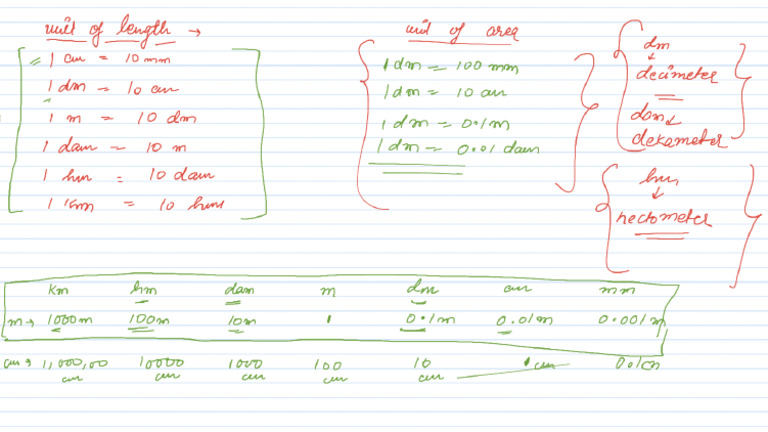 unit of length →
= 1 cm = 10 mm
1 dm = 10 cm
1 m = 10 dm
1 dam = 10 m
1 hm = 10 dam
1 Km = 10 hm
unit of area
1 dm = 100 mm
1 dm = 10 cm
1 dm = 0.1 m
1 dm = 0.01 dam
dm
↓
decimeter
dam ↓
dekameter
hm
↓
hectometer
Km hm dam m dm cm mm
m → 1000m 100m 10m 1 0.1m 0.01m 0.001m
cm → 1,000,00 cm 10000 cm 1000 cm 100 cm 10 cm 1 cm 0.1cm